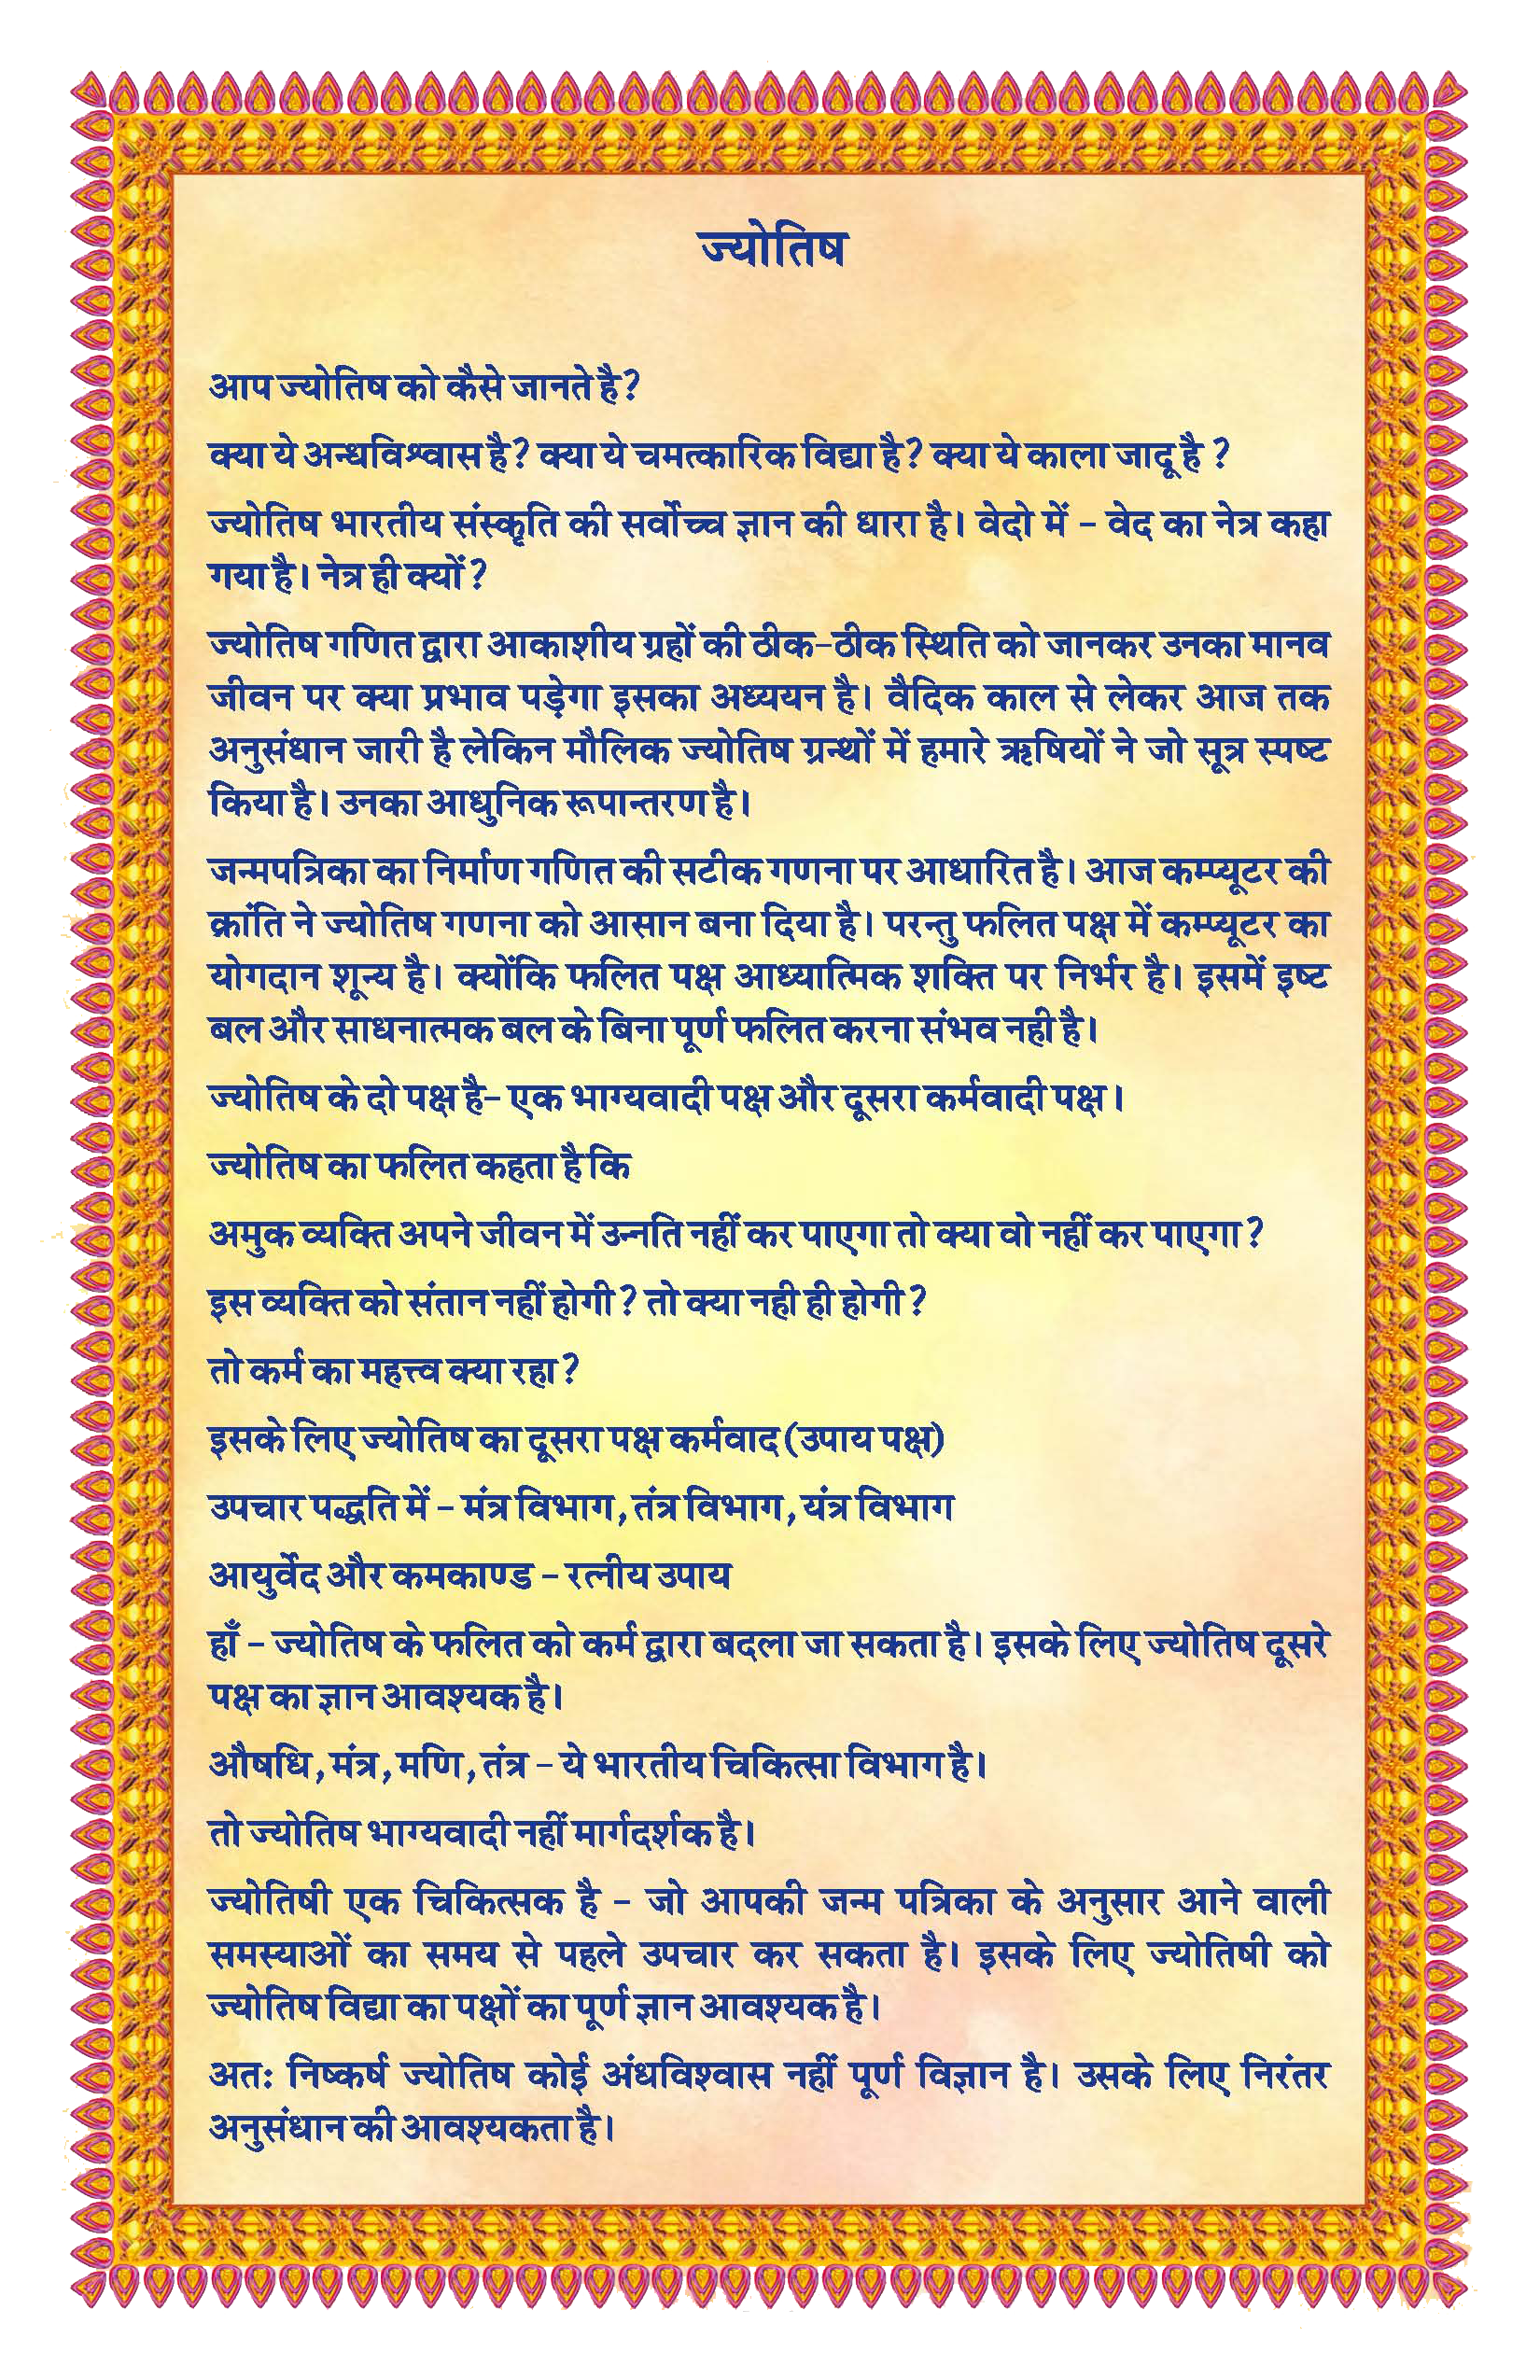 ज्योतिष
आप ज्योतिष को कैसे जानते है?
क्या ये अन्धविश्वास है? क्या ये चमत्कारिक विद्या है? क्या ये काला जादू है ?
ज्योतिष भारतीय संस्कृति की सर्वोच्च ज्ञान की धारा है। वेदो में - वेद का नेत्र कहा
गया है। नेत्र ही क्यों?
ज्योतिष गणित द्वारा आकाशीय ग्रहों की ठीक-ठीक स्थिति को जानकर उनका मानव
जीवन पर क्या प्रभाव पड़ेगा इसका अध्ययन है। वैदिक काल से लेकर आज तक
अनुसंधान जारी है लेकिन मौलिक ज्योतिष ग्रन्थों में हमारे ऋषियों ने जो सूत्र स्पष्ट
किया है। उनका आधुनिक रूपान्तरण है।
जन्मपत्रिका का निर्माण गणित की सटीक गणना पर आधारित है। आज कम्प्यूटर की
क्रांति ने ज्योतिष गणना को आसान बना दिया है। परन्तु फलित पक्ष में कम्प्यूटर का
योगदान शून्य है। क्योंकि फलित पक्ष आध्यात्मिक शक्ति पर निर्भर है। इसमें इष्ट
बल और साधनात्मक बल के बिना पूर्ण फलित करना संभव नही है।
ज्योतिष के दो पक्ष है- एक भाग्यवादी पक्ष और दूसरा कर्मवादी पक्ष।
ज्योतिष का फलित कहता है कि
अमुक व्यक्ति अपने जीवन में उन्नति नहीं कर पाएगा तो क्या वो नहीं कर पाएगा?
इस व्यक्ति को संतान नहीं होगी? तो क्या नही ही होगी?
तो कर्म का महत्त्व क्या रहा?
इसके लिए ज्योतिष का दूसरा पक्ष कर्मवाद (उपाय पक्ष)
उपचार पद्धति में - मंत्र विभाग, तंत्र विभाग, यंत्र विभाग
आयुर्वेद और कमकाण्ड - रत्नीय उपाय
हाँ - ज्योतिष के फलित को कर्म द्वारा बदला जा सकता है। इसके लिए ज्योतिष दूसरे
पक्ष का ज्ञान आवश्यक है।
औषधि, मंत्र, मणि, तंत्र - ये भारतीय चिकित्सा विभाग है।
तो ज्योतिष भाग्यवादी नहीं मार्गदर्शक है।
ज्योतिषी एक चिकित्सक है - जो आपकी जन्म पत्रिका के अनुसार आने वाली
समस्याओं का समय से पहले उपचार कर सकता है। इसके लिए ज्योतिषी को
ज्योतिष विद्या का पक्षों का पूर्ण ज्ञान आवश्यक है।
अतः निष्कर्ष ज्योतिष कोई अंधविश्वास नहीं पूर्ण विज्ञान है। उसके लिए निरंतर
अनुसंधान की आवश्यकता है।